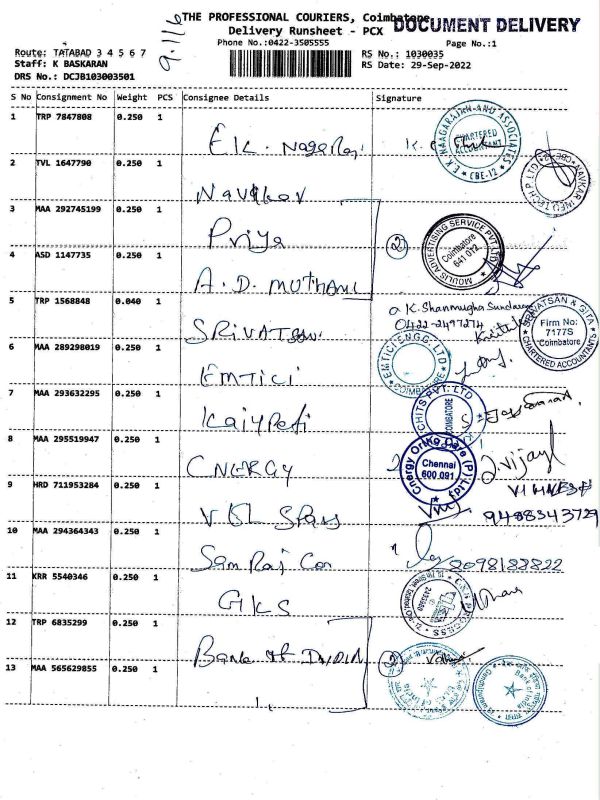 THE PROFESSIONAL COURIERS, Coimbatore
DOCUMENT DELIVERY
Delivery Runsheet - PCX
Phone No.:0422-3505555
Page No.:1
Route: TATABAD 3 4 5 6 7
RS No.: 1030035
Staff: K BASKARAN
RS Date: 29-Sep-2022
DRS No.: DCJB103003501
S No Consignment No Weight PCS Consignee Details Signature
1 TRP 7847808 0.250 1
E.K. Nagaraj
E.K. NAAGARAJAN AND ASSOCIATES
CHARTERED ACCOUNTANT
CBE-12
2 TVL 1647790 0.250 1
3 MAA 292745199 0.250 1
Priya
2
MOULIS ADVERTISING SERVICE PVT LTD
Coimbatore
641 012
4 ASD 1147735 0.250 1
A. D. MUTHANI
5 TRP 1568848 0.040 1
K. Shanmugha Sundaram
0422-2497274
SRIVATSAN
SRIVATSAN & GITA
Firm No:
7177S
Coimbatore
CHARTERED ACCOUNTANTS
6 MAA 289298019 0.250 1
EMTICI
EMTICI ENGG. LTD
COIMBATORE
7 MAA 293632295 0.250 1
CHITS PVT. LTD
COIMBATORE
8 MAA 295519947 0.250 1
ENERGY
Energy Ortho Care (P) Ltd
Chennai
600 091
J. Vijay
9 HRD 711953284 0.250 1
9488343729
10 MAA 294364343 0.250 1
Sam Raj Con
8098188822
11 KRR 5540346 0.250 1
GKS
12 TRP 6835299 0.250 1
Bank of INDIA
2
13 MAA 565629855 0.250 1
Bank of India